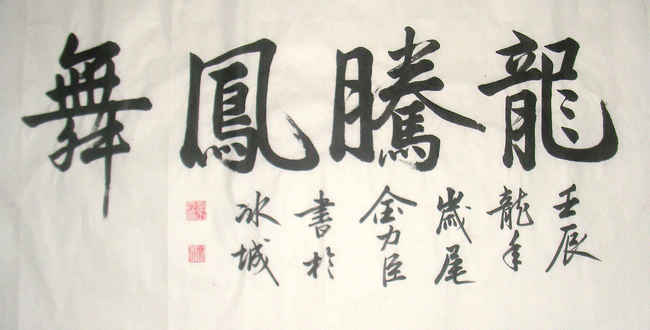 龍騰鳳舞
壬辰
龍年
歲尾
金力臣
書於
冰城